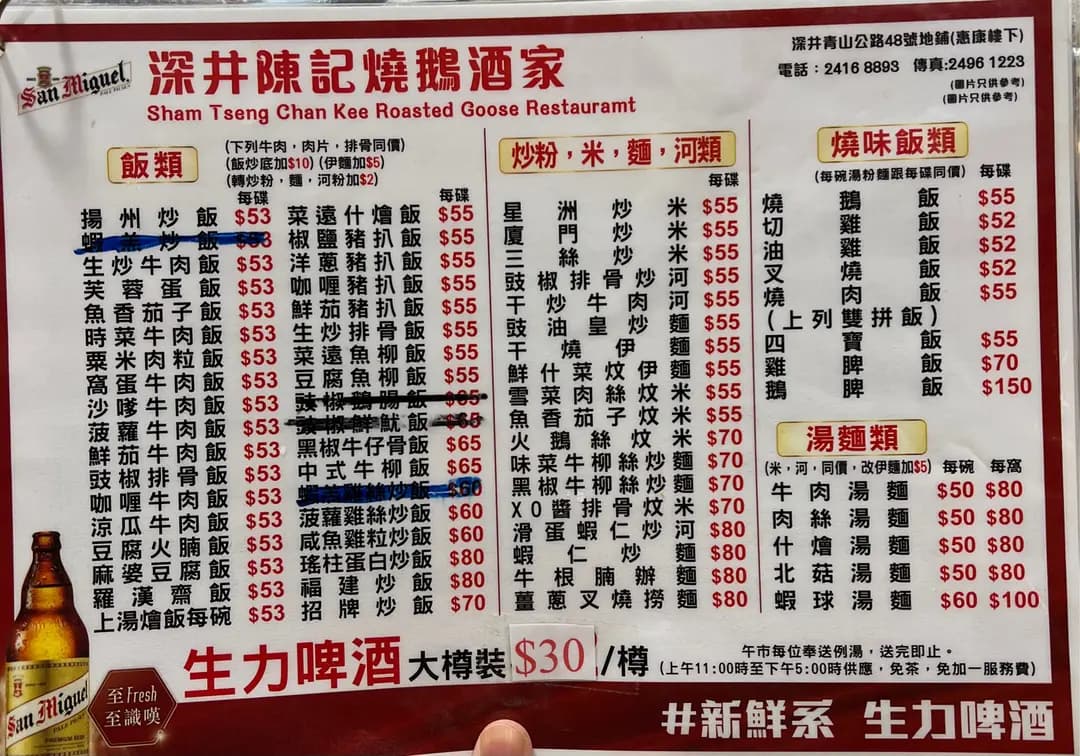 San Miguel
PALE PILSEN
深井陳記燒鵝酒家
Sham Tseng Chan Kee Roasted Goose Restauramt
深井青山公路48號地鋪(惠康樓下)
電話：2416 8893 傳真:2496 1223
(圖片只供參考)
(圖片只供參考)
飯類
(下列牛肉，肉片，排骨同價)
(飯炒底加$10) (伊麵加$5)
(轉炒粉，麵，河粉加$2)
每碟
揚州炒飯 $53
生炒牛肉飯 $53
芙蓉蛋飯 $53
魚香茄子飯 $53
時菜牛肉飯 $53
粟米肉粒飯 $53
窩蛋牛肉飯 $53
沙嗲牛肉飯 $53
菠蘿牛肉飯 $53
鮮茄牛肉飯 $53
豉椒排骨飯 $53
咖喱牛肉飯 $53
涼瓜牛肉飯 $53
豆腐火腩飯 $53
麻婆豆腐飯 $53
羅漢齋飯 $53
上湯燴飯每碗 $53
每碟
菜遠什燴飯 $55
椒鹽豬扒飯 $55
洋蔥豬扒飯 $55
咖喱豬扒飯 $55
鮮茄豬扒飯 $55
生炒排骨飯 $55
菜遠魚柳飯 $55
豆腐魚柳飯 $55
豉椒鵝腸飯
豉椒鮮魷飯
黑椒牛仔骨飯 $65
中式牛柳飯 $65
雞絲炒飯 $60
菠蘿雞絲炒飯 $60
咸魚雞粒炒飯 $60
瑤柱蛋白炒飯 $80
福建炒飯 $80
招牌炒飯 $70
炒粉，米，麵，河類
每碟
星洲炒米 $55
廈門炒米 $55
三絲炒米 $55
豉椒排骨炒河 $55
干炒牛肉河 $55
豉油皇炒麵 $55
干燒伊麵 $55
鮮什菜炆伊麵 $55
雪菜肉絲炆米 $55
魚香茄子炆米 $55
火鵝絲炆米 $70
味菜牛柳絲炒麵 $70
黑椒牛柳絲炒麵 $70
XO醬排骨炆米 $70
滑蛋蝦仁炒河 $80
蝦仁炒麵 $80
牛根腩辦麵 $80
薑蔥叉燒撈麵 $80
燒味飯類
(每碗湯粉麵跟每碟同價) 每碟
燒鵝飯 $55
切雞飯 $52
油雞飯 $52
叉燒飯 $52
燒肉飯 $55
(上列雙拼飯)
四寶飯 $55
雞脾飯 $70
鵝脾飯 $150
湯麵類
(米，河，同價，改伊麵加$5) 每碗 每窩
牛肉湯麵 $50 $80
肉絲湯麵 $50 $80
什燴湯麵 $50 $80
北菇湯麵 $50 $80
蝦球湯麵 $60 $100
生力啤酒 大樽裝 $30 /樽
午市每位奉送例湯，送完即止。
(上午11:00時至下午5:00時供應，免茶，免加一服務費)
San Miguel
至Fresh
至識嘆
#新鮮系 生力啤酒